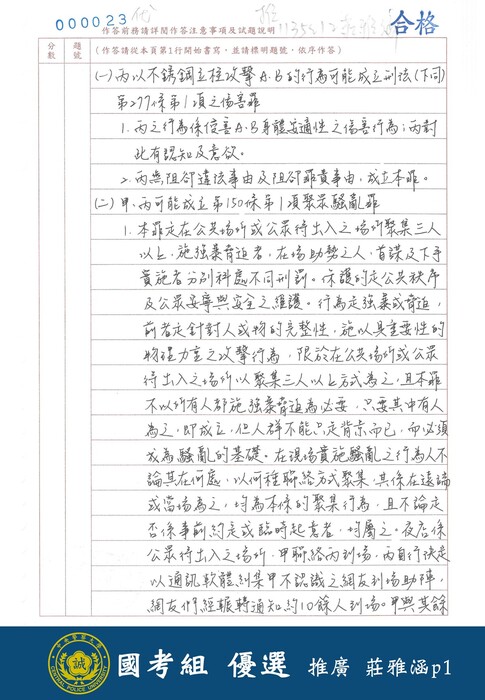 000023
代
推
1135212 莊雅涵
合格
作答前務請詳閱作答注意事項及試題說明
分數
題號
(作答請從本頁第1行開始書寫,並請標明題號,依序作答)
(一)丙以不銹鋼立柱攻擊A、B的行為可能成立刑法(下同)
第277條第1項之傷害罪
1. 丙之行為係侵害A、B身體安適性之傷害行為;丙對
此有認知及意欲。
2. 丙無阻卻違法事由及阻卻罪責事由,成立本罪。
(二)甲、丙可能成立第150條第1項聚眾騷亂罪
1. 本罪是在公共場所或公眾得出入之場所聚集三人
以上,施強暴脅迫者,在場助勢之人,首謀及下手
實施者分別科處不同刑罰。保護的是公共秩序
及公眾安寧與安全之維護。行為是強暴或脅迫,
前者是針對人或物的完整性,施以具重要性的
物理力量之攻擊行為,限於在公共場所或公眾
得出入之場所以聚集三人以上方式為之,且本罪
不以所有人都施強暴脅迫為必要,只要其中有人
為之,即成立,但人群不能只是背景而已,而必須
成為騷亂的基礎。在現場實施騷亂之行為人不
論其在何處,以何種聯絡方式聚集,其係在遠端
或當場為之,均為本條的聚集行為,且不論是
否係事前約定或臨時起意者,均屬之。夜店係
公眾得出入之場所,甲聯絡丙到場,丙自行決定
以通訊軟體糾集甲不認識之網友到場助陣,
網友們經輾轉通知約10餘人到場。甲與其餘
中央警察大學
誠
CENTRAL POLICE UNIVERSITY
國考組 優選 推廣 莊雅涵p1